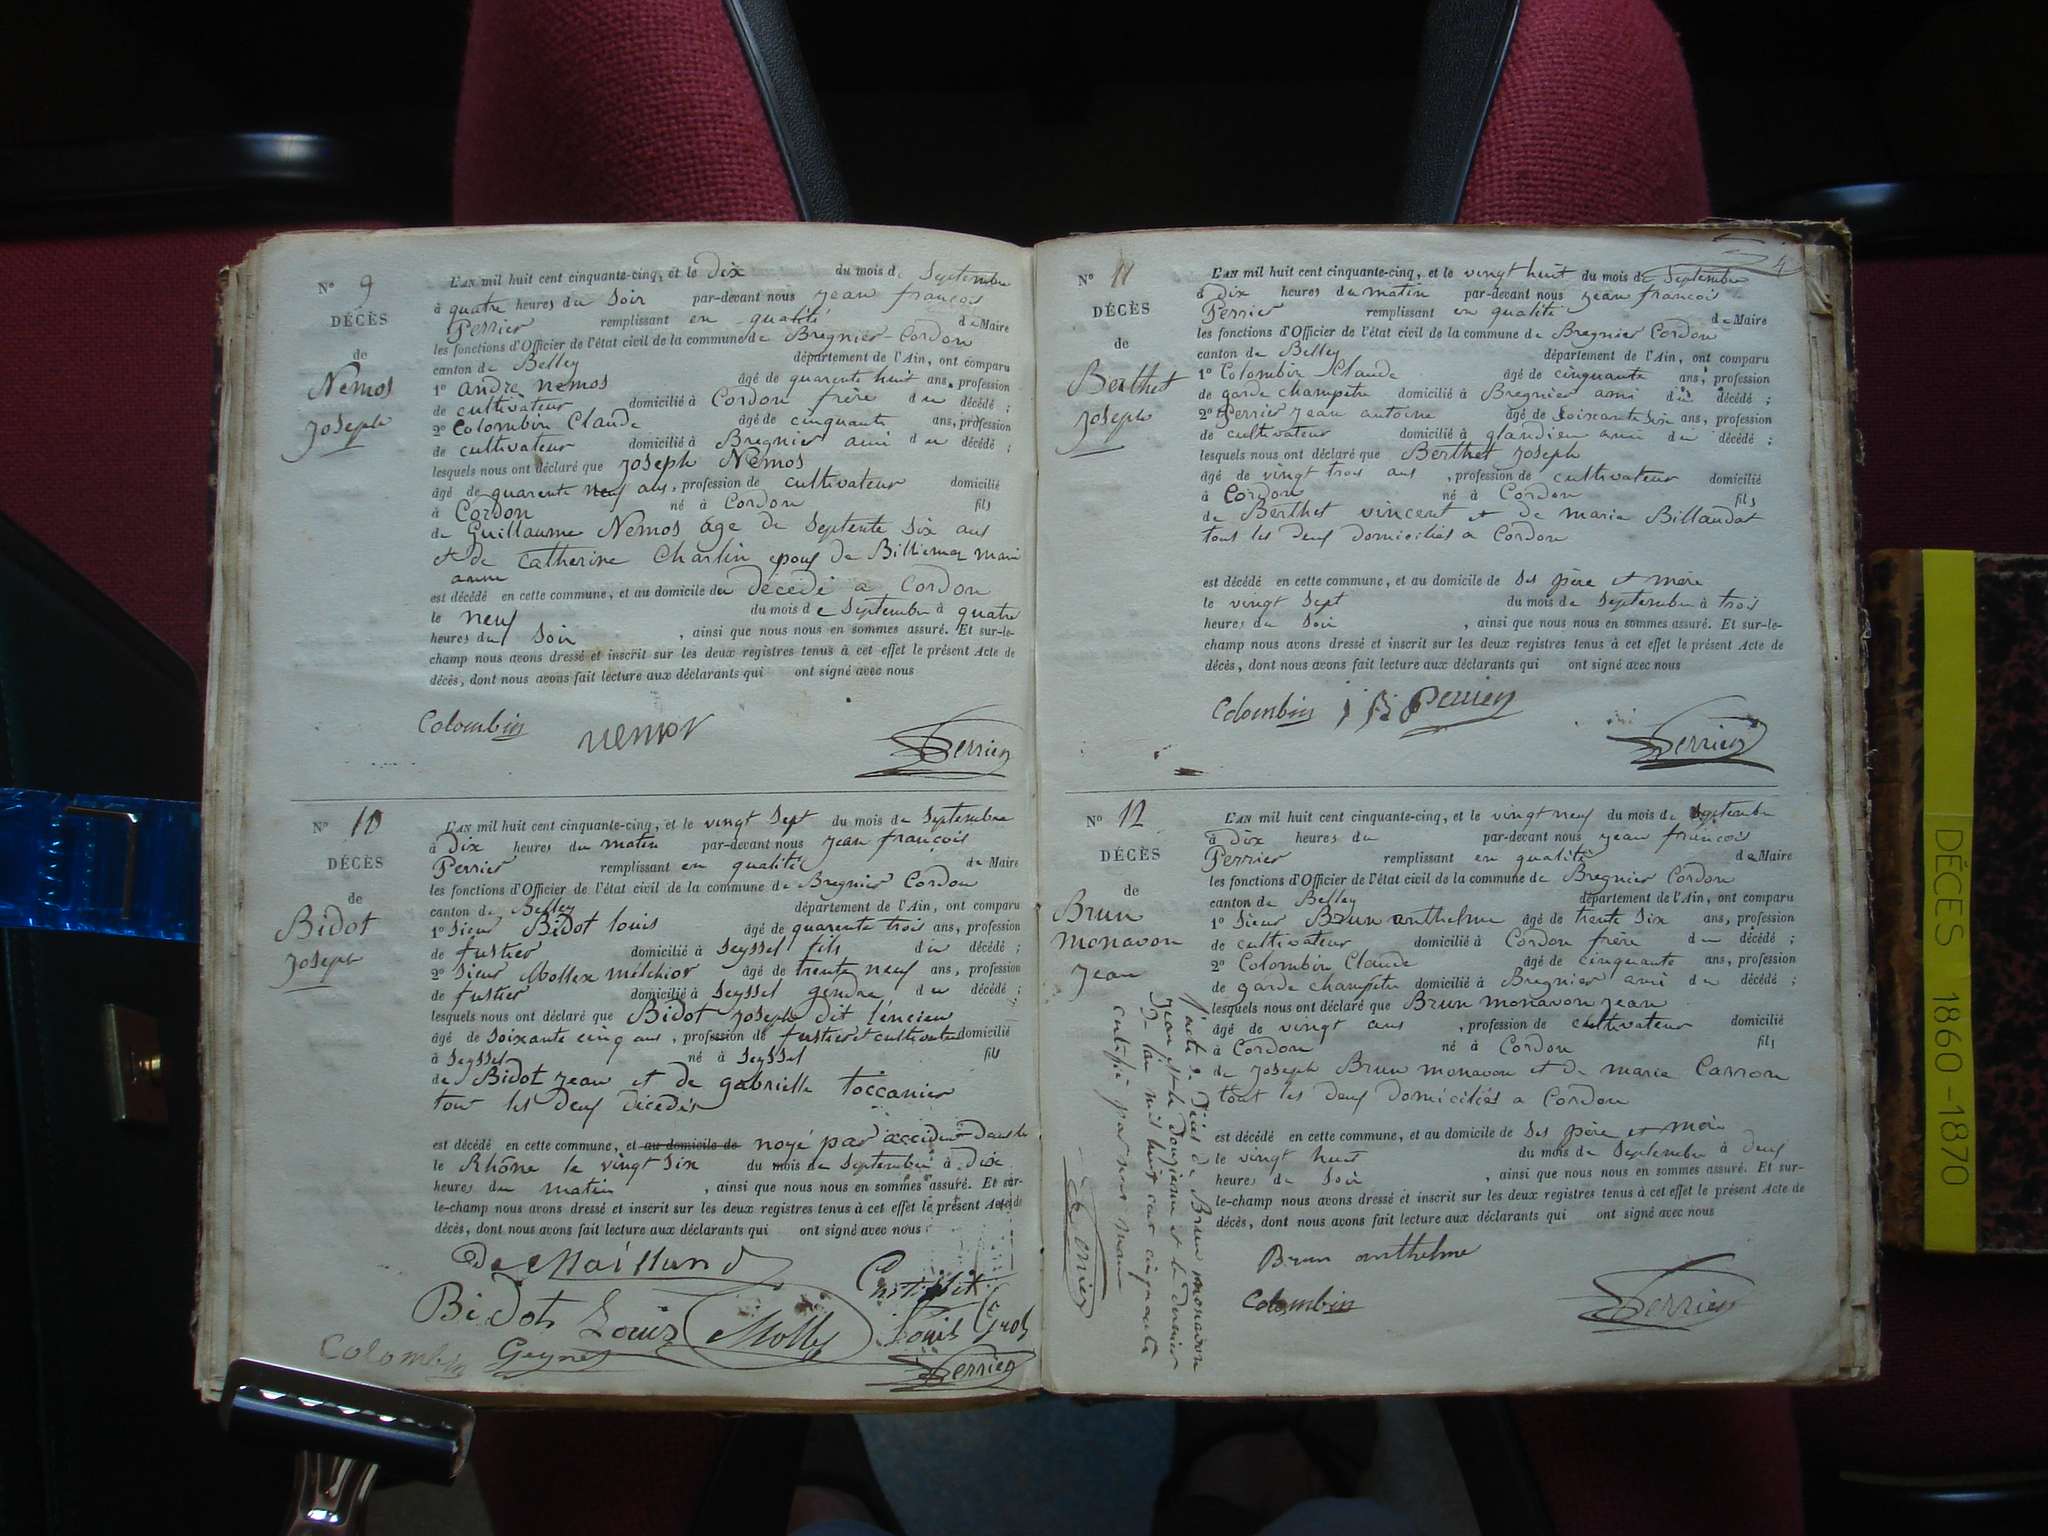 N° 9
DÉCÈS
de
Nemos
Joseph
L'AN mil huit cent cinquante-cinq, et le Dix du mois de Septembre
à quatre heures du Soir par-devant nous Jean françois
Perrier remplissant en qualité de Maire
les fonctions d'Officier de l'état civil de la commune de Bregnier-Cordon
canton de Belley département de l'Ain, ont comparu
1° andré nemos âgé de quarente huit ans, profession
de cultivateur domicilié à Cordon frère du décédé ;
2° Colombin Claude âgé de cinquante ans, profession
de cultivateur domicilié à Bregnier ami du décédé ;
lesquels nous ont déclaré que Joseph Nemos
âgé de quarente neuf ans, profession de cultivateur domicilié
à Cordon né à Cordon fils
de Guillaume Nemos age de Septente Six ans
et de Catherine Charlin epoux de Billiemaz marie
anne
est décédé en cette commune, et au domicile du décédé a Cordon
le neuf du mois de Septembre à quatre
heures du Soir , ainsi que nous nous en sommes assuré. Et sur-le-
champ nous avons dressé et inscrit sur les deux registres tenus à cet effet le présent Acte de
décès, dont nous avons fait lecture aux déclarants qui ont signé avec nous
Colombin nemos Perrier
N° 10
DÉCÈS
de
Bidot
Joseph
L'AN mil huit cent cinquante-cinq, et le vingt Sept du mois de Septembre
à Dix heures du matin par-devant nous Jean françois
Perrier remplissant en qualité de Maire
les fonctions d'Officier de l'état civil de la commune de Bregnier Cordon
canton de Belley département de l'Ain, ont comparu
1° Sieur Bidot louis âgé de quarente trois ans, profession
de fustier domicilié à Seyssel fils du décédé ;
2° Sieur Mollex melchior âgé de trente neuf ans, profession
de fustier domicilié à Seyssel gendre du décédé ;
lesquels nous ont déclaré que Bidot Joseph dit l'encien
âgé de Soixante cinq ans, profession de fustier et cultivateur domicilié
à Seyssel né à Seyssel fils
de Bidot Jean et de gabrielle toccanier
tous les deux décédés
est décédé en cette commune, et au domicile de noyé par accident dans le
le Rhône le vingt Six du mois de Septembre à Dix
heures du matin , ainsi que nous nous en sommes assuré. Et sur-
le-champ nous avons dressé et inscrit sur les deux registres tenus à cet effet le présent Acte de
décès, dont nous avons fait lecture aux déclarants qui ont signé avec nous
De Maillund
Bidot Louis Molly Louis
Colombin Perrier
4
N° 11
DÉCÈS
de
Berthet
Joseph
L'AN mil huit cent cinquante-cinq, et le vingt huit du mois de Septembre
à Dix heures du matin par-devant nous Jean françois
Perrier remplissant en qualité de Maire
les fonctions d'Officier de l'état civil de la commune de Bregnier Cordon
canton de Belley département de l'Ain, ont comparu
1° Colombin Claude âgé de cinquante ans, profession
de garde champetre domicilié à Bregnier ami du décédé ;
2° Perrier Jean antoine âgé de Soixante Six ans, profession
de cultivateur domicilié à glandieu ami du décédé ;
lesquels nous ont déclaré que Berthet Joseph
âgé de vingt trois ans , profession de cultivateur domicilié
à Cordon né à Cordon fils
de Berthet vincent et de marie Billaudat
tous les deux domiciliés a Cordon
est décédé en cette commune, et au domicile de Ses père et mère
le vingt Sept du mois de Septembre à trois
heures du Soir , ainsi que nous nous en sommes assuré. Et sur-le-
champ nous avons dressé et inscrit sur les deux registres tenus à cet effet le présent Acte de
décès, dont nous avons fait lecture aux déclarants qui ont signé avec nous
Colombin Perrier
Perrier
N° 12
DÉCÈS
de
Brun
monavon
Jean
L'AN mil huit cent cinquante-cinq, et le vingt neuf du mois de Septembre
à Dix heures du par-devant nous Jean françois
Perrier remplissant en qualité de Maire
les fonctions d'Officier de l'état civil de la commune de Bregnier Cordon
canton de Belley département de l'Ain, ont comparu
1° Sieur Brun anthelme âgé de trente Six ans, profession
de cultivateur domicilié à Cordon frère du décédé ;
2° Colombin Claude âgé de cinquante ans, profession
de garde champetre domicilié à Bregnier ami du décédé ;
lesquels nous ont déclaré que Brun monavon Jean
âgé de vingt ans , profession de cultivateur domicilié
à Cordon né à Cordon fils
de Joseph Brun monavon et de marie Carron
tout les deux domiciliés a Cordon
est décédé en cette commune, et au domicile de Ses père et mère
le vingt huit du mois de Septembre à deux
heures de Soir , ainsi que nous nous en sommes assuré. Et sur-
le-champ nous avons dressé et inscrit sur les deux registres tenus à cet effet le présent Acte de
décès, dont nous avons fait lecture aux déclarants qui ont signé avec nous
Brun anthelme
Colombin Perrier
l'acte de Décès de Brun monavon
Jean est le douzieme et le dernier
de l'an mil huit cent cinquante
certifié par nous maire
Perrier
DÉCES 1860-1870